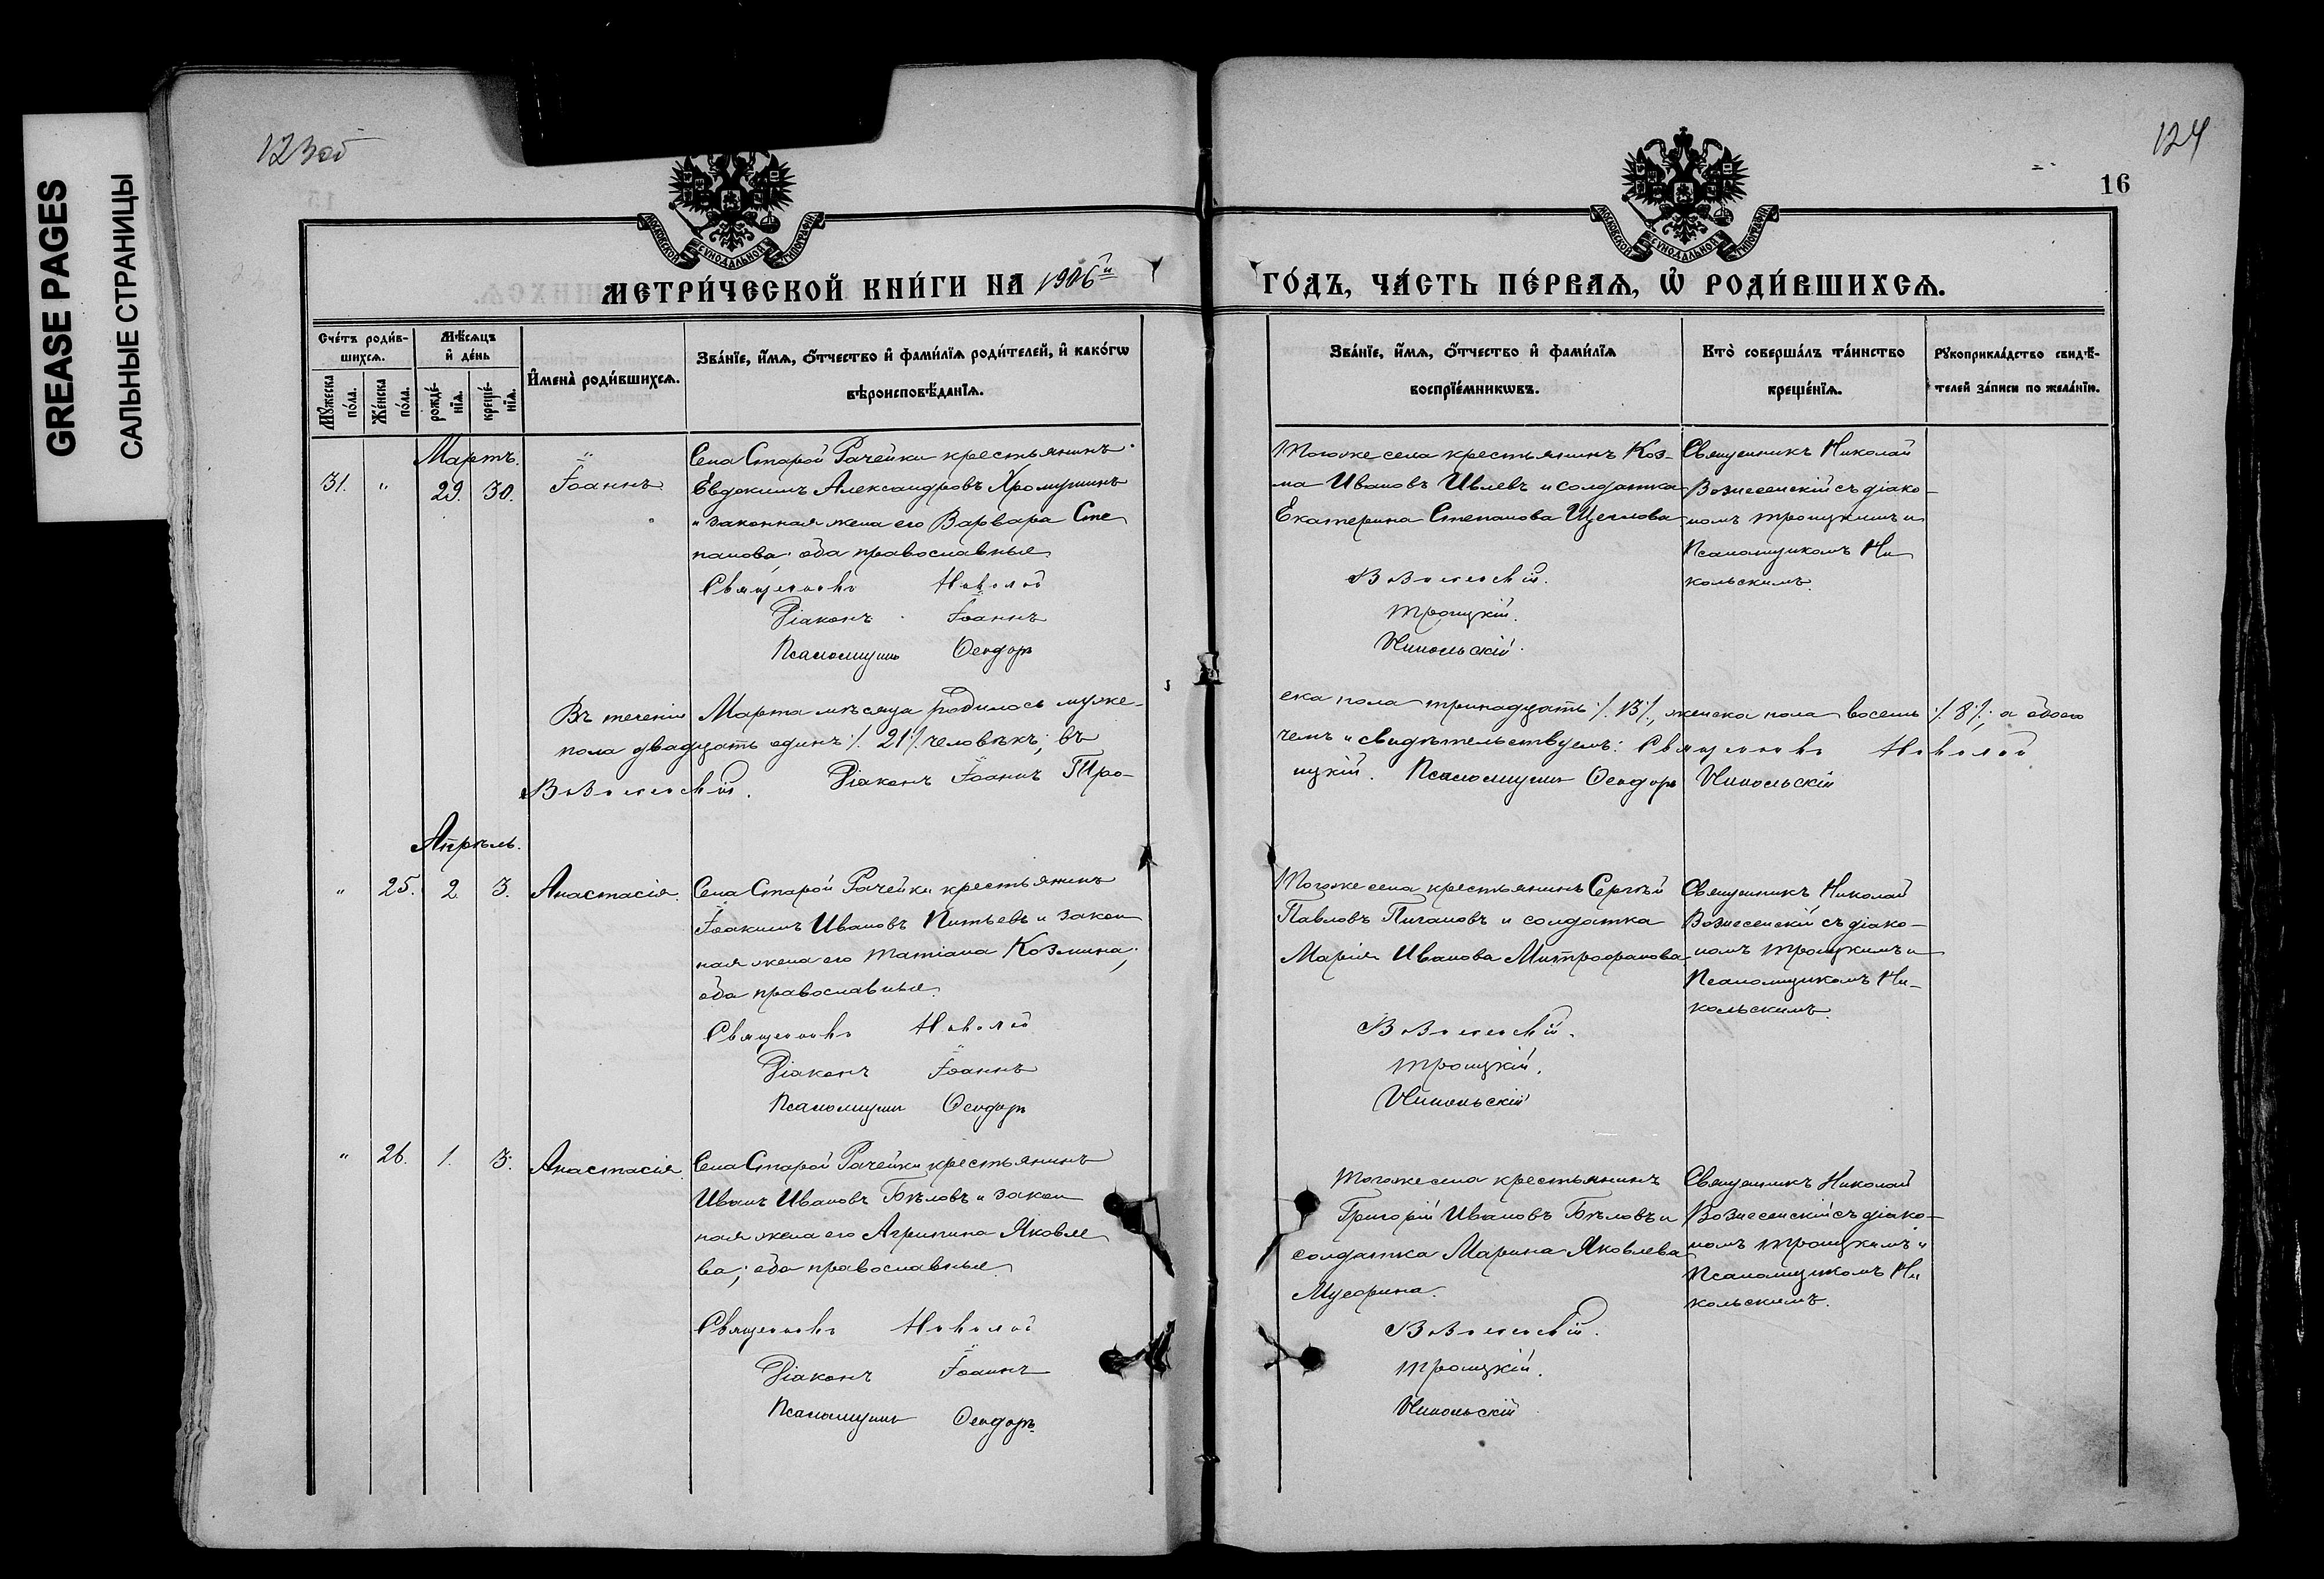 GREASE PAGES
САЛЬНЫЕ СТРАНИЦЫ
123об
124
16
МОСКОВСКОЙ СѴНОДАЛЬНОЙ ТИПОГРАФІИ
МОСКОВСКОЙ СѴНОДАЛЬНОЙ ТИПОГРАФІИ
МЕТРИ́ЧЕСКОЙ КНИ́ГИ НА 1906й
ГО́ДЪ, ЧА́СТЬ ПЕ́РВАѦ, Ѽ РОДИ́ВШИХСѦ.
Сче́тъ роди́в-
шихсѧ.
Мꙋ́жеска по́ла.
Же́нска по́ла.
Мѣ́сѧцъ
и҆ де́нь
рожде́-
нїѧ.
креще́-
нїѧ.
И҆мена̀ роди́вшихсѧ.
Зва́нїе, и҆́мѧ, ѻ҆́тчество и҆ фами́лїѧ роди́телей, и҆ како́гѡ
вѣроисповѣ́данїѧ.
Зва́нїе, и҆́мѧ, ѻ҆́тчество и҆ фами́лїѧ
воспрїе́мникѡвъ.
Кто̀ соверша́лъ та́инство
креще́нїѧ.
Рꙋкоприкла́дство свидѣ́-
телей за́писи по жела́нїю.
Мартъ.
31. " 29. 30. Іоаннъ
Села Старой Рачейки крестьянинъ
Евдокимъ Александровъ Хромушинъ
и законная жена его Варвара Сте
панова. оба православные
Священникъ Николай
Діаконъ Іоаннъ
Псаломщикъ Ѳеодоръ
Тогоже села крестьянинъ Коз-
ма Ивановъ Ивлевъ и солдатка
Екатерина Степанова Щеглова
Вознесенскій.
Троицкій.
Никольскій.
Священникъ Николай
Вознесенскій съ діако-
номъ Троицкимъ и
Псаломщикомъ Ни
кольскимъ.
Въ теченіи Марта мѣсяца родилось муже-
ска пола тринадцать ./. 13 ./., женска пола восемь ./. 8 ./. а обоего
пола двадцать одинъ ./. 21 ./. человѣкъ; въ
чемъ и свидѣтельствуемъ: Священникъ Николай
Вознесенскій. Діаконъ Іоаннъ Тро-
ицкій. Псаломщикъ Ѳеодоръ Никольскій
Апрѣль.
" 25. 2. 3. Анастасія.
Села Старой Рачейки крестьянинъ
Іоакимъ Ивановъ Питьевъ и закон
ная жена его Татіана Козмина;
оба православные.
Священникъ Николай
Діаконъ Іоаннъ
Псаломщикъ Ѳеодоръ
Тогоже села крестьянинъ Сергѣй
Павловъ Пичановъ и солдатка
Марія Иванова Митрофанова
Вознесенскій.
Троицкій.
Никольскій
Священникъ Николай
Вознесенскій съ діако-
номъ Троицкимъ и
Псаломщикомъ Ни-
кольскимъ.
" 26. 1. 3. Анастасія.
Села Старой Рачейки крестьянинъ
Иванъ Ивановъ Бѣловъ и закон
ная жена его Агрипина Яковле
ва; оба православные.
Священникъ Николай
Діаконъ Іоаннъ
Псаломщикъ Ѳеодоръ.
Тогоже села крестьянинъ
Григорій Ивановъ Бѣловъ и
солдатка Марина Яковлева
Мусорина.
Вознесенскій.
Троицкій.
Никольскій
Священникъ Николай
Вознесенскій съ діако-
номъ Троицкимъ и
Псаломщикомъ Ни
кольскимъ.